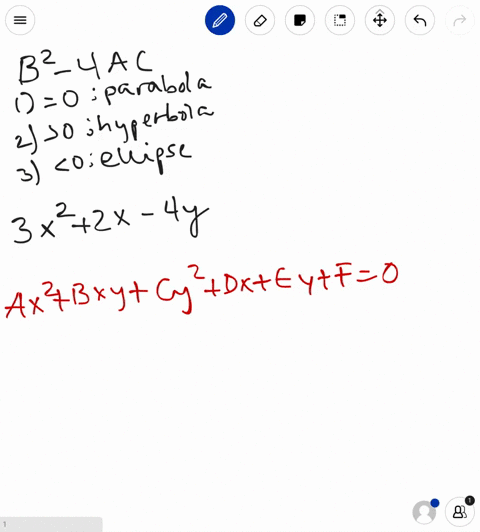 B² - 4AC
1) = 0 : parabola
2) > 0 : hyperbola
3) < 0 : ellipse
3x² + 2x - 4y
Ax² + Bxy + Cy² + Dx + Ey + F = 0
1
1